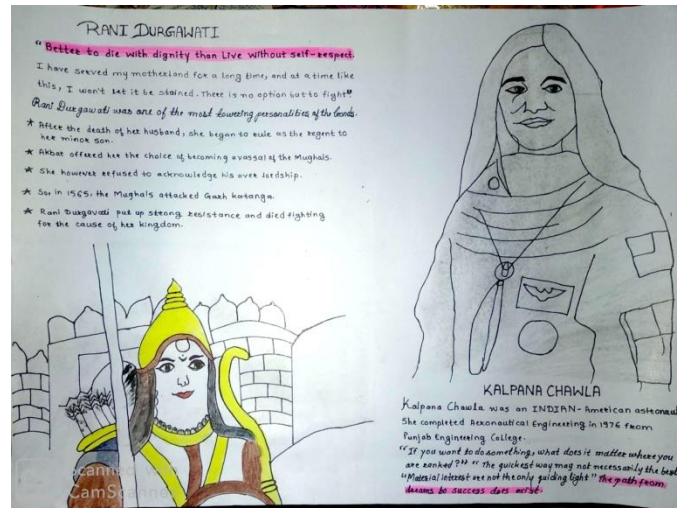 RANI DURGAWATI
"Better to die with dignity than Live without self-respect.
I have served my motherland for a long time, and at a time like
this, I won't let it be stained. There is no option but to fight"
Rani Durgawati was one of the most towering personalities of the Gonds.
★ After the death of her husband, she began to rule as the regent to
her minor son.
★ Akbar offered her the choice of becoming a vassal of the Mughals.
★ She however refused to acknowledge his over lordship.
★ So, in 1565, the Mughals attacked Garh katanga.
★ Rani Durgavati put up strong resistance and died fighting
for the cause of her kingdom.
Scanned with
CamScanner
KALPANA CHAWLA
Kalpana Chawla was an INDIAN-American astronaut
She completed Aeronautical Engineering in 1976 from
Punjab Engineering College.
"If you want to do something, what does it matter where you
are ranked?" "The quickest way may not necessarily the best
"Material interest are not the only guiding light" "The path from
dreams to success does exist.